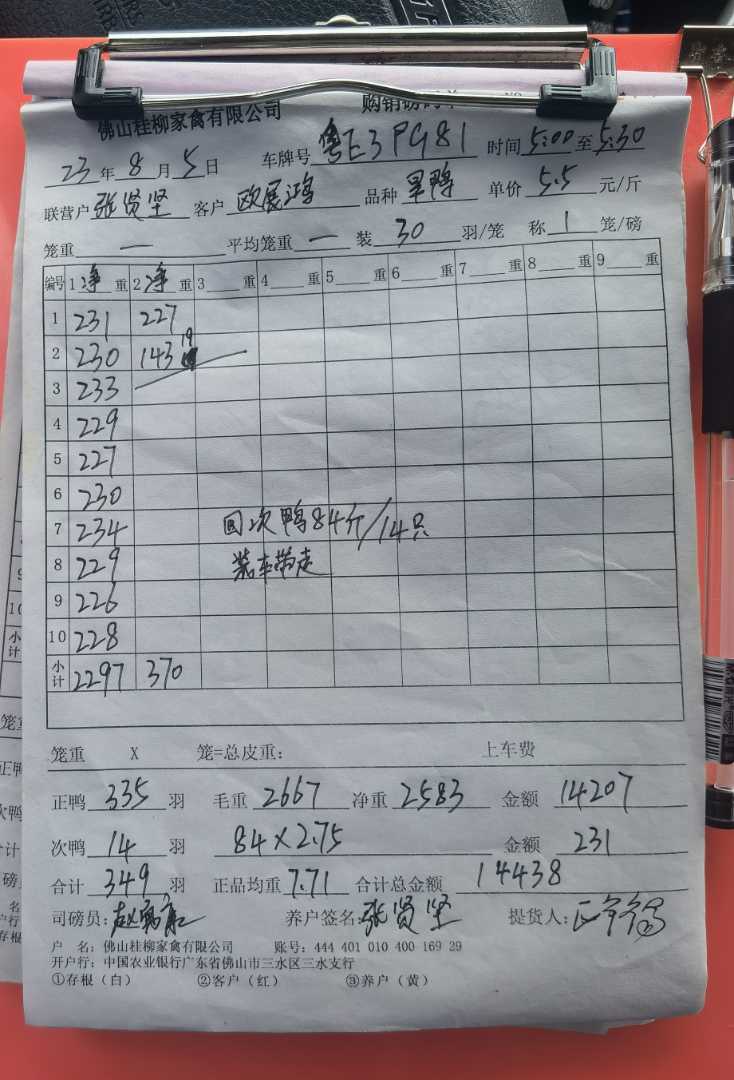 佛山桂柳家禽有限公司 购销磅码单
23年8月5日 车牌号 粤E3P981 时间 5:00 至 5:30
联营户 张贤坚 客户 欧展鸿 品种 旱鸭 单价 5.5 元/斤
笼重 — 平均笼重 — 装 30 羽/笼 称 1 笼/磅
编号 1 净 重 2 净 重 3 重 4 重 5 重 6 重 7 重 8 重 9 重
1 231 227
2 230 143 19
3 233
4 229
5 227
6 230
7 234 回次鸭84斤/14只
8 229 装车带走
9 226
10 228
小计 2297 370
笼重 X 笼=总皮重: 上车费
正鸭 335 羽 毛重 2667 净重 2583 金额 14207
次鸭 14 羽 84×2.75 金额 231
合计 349 羽 正品均重 7.71 合计总金额 14438
司磅员: 养户签名: 张贤坚 提货人:
户 名: 佛山桂柳家禽有限公司 账号: 444 401 010 400 169 29
开户行: 中国农业银行广东省佛山市三水区三水支行
①存根（白） ②客户（红） ③养户（黄）